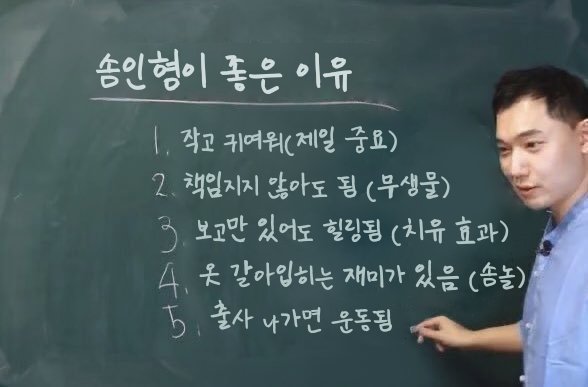 솜인형이 좋은 이유
1. 작고 귀여워(제일 중요)
2. 책임지지 않아도 됨 (무생물)
3. 보고만 있어도 힐링됨 (치유 효과)
4. 옷 갈아입히는 재미가 있음 (솜놀)
5. 출사 나가면 운동됨